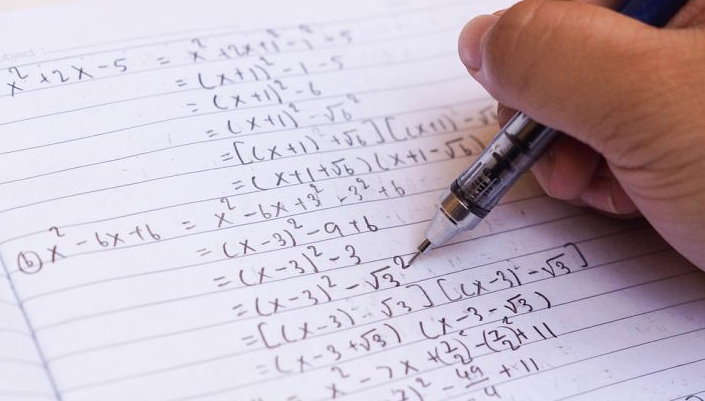 x² + 2x - 5 = x² + 2x + 1² - 1² - 5
= (x+1)² - 1 - 5
= (x+1)² - 6
= (x+1)² - √6²
= [(x+1) + √6] [(x+1) - √6
= (x+1+√6) (x+1-√6)
(b) x² - 6x + 6 = x² - 6x + 3² - 3² + 6
= (x-3)² - 9 + 6
= (x-3)² - 3
= (x-3)² - √3²
= [(x-3) √3] [(x-3) - √3]
= (x-3+√3) (x-3-√3)
= x² - 7x + (7/2)² - (7/2)² + 11
)² - 49/4 + 11